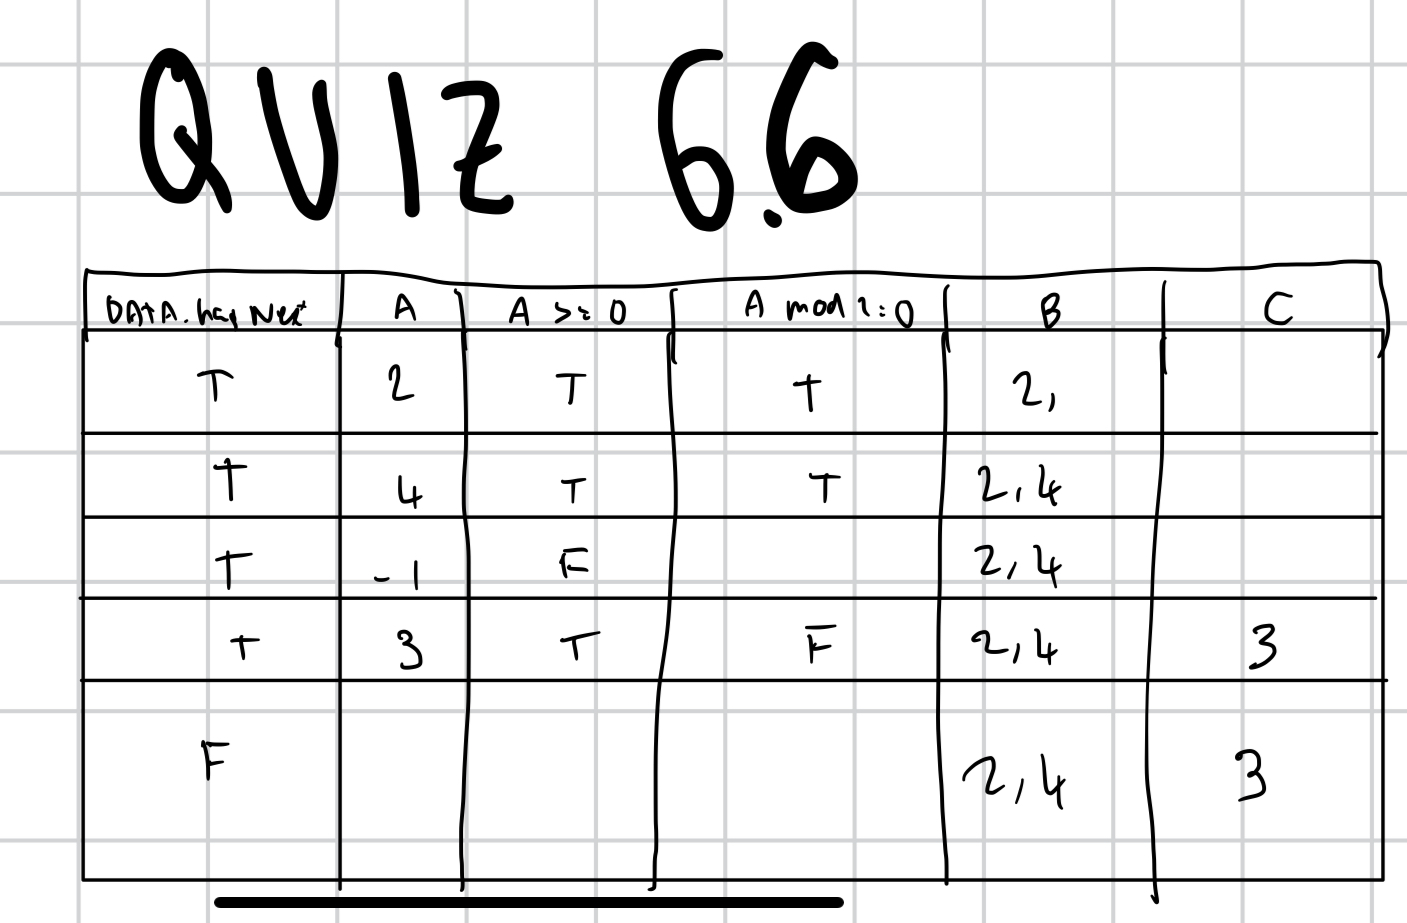 QUIZ 6.6
DATA.hasNext A A >= 0 A mod 2 = 0 B C
T 2 T T 2,
T 4 T T 2,4
T -1 F 2,4
T 3 T F 2,4 3
F 2,4 3